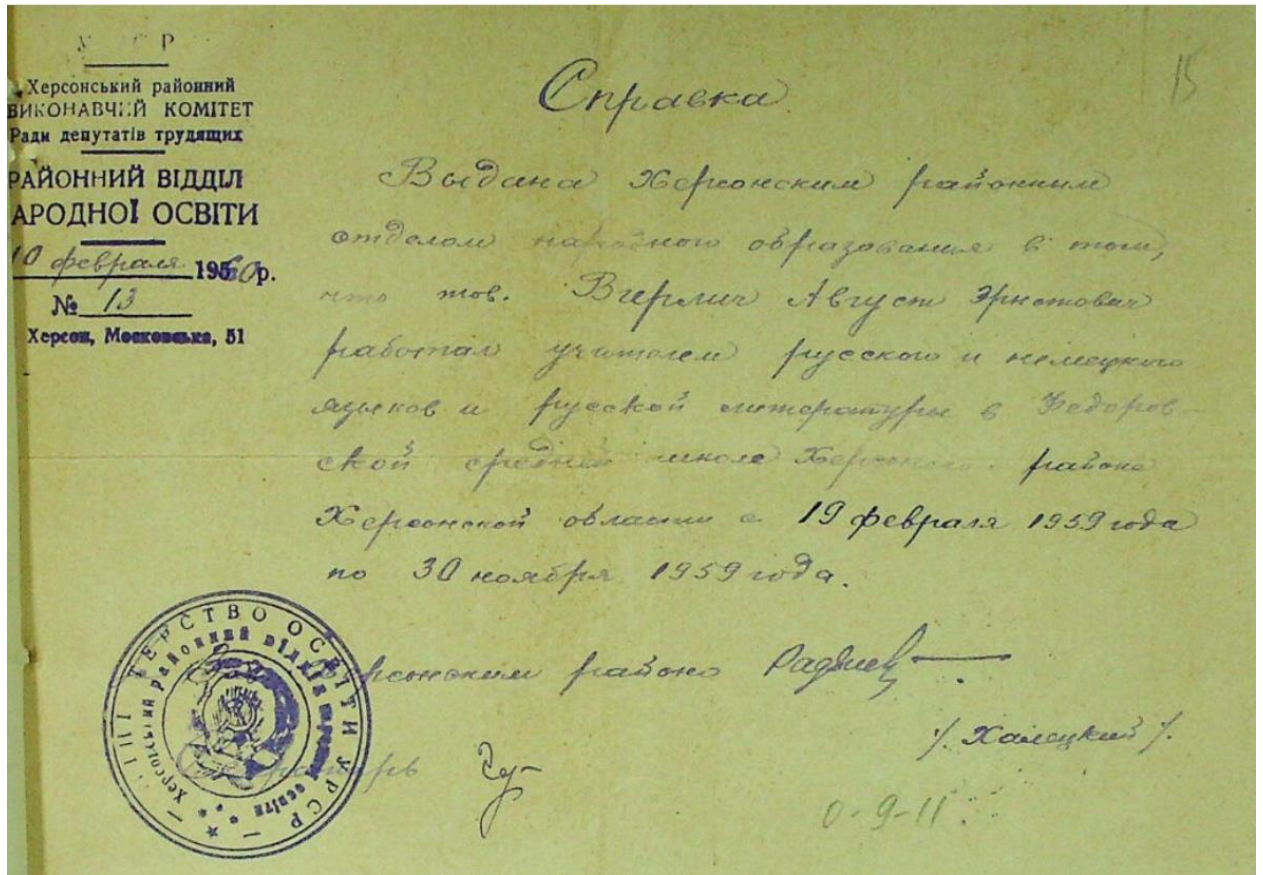 У С Р
Херсонський районний
ВИКОНАВЧИЙ КОМІТЕТ
Ради депутатів трудящих
РАЙОННИЙ ВІДДІЛ
АРОДНОЇ ОСВІТИ
10 февраля 1960р.
№ 13
Херсон, Московська, 51
15
Справка
Выдана Херсонским районным
отделом народного образования в том,
что тов. Август Эрнстович
работал учителем русского и немецкого
языков и русской литературы в Федоров-
ской средней школе Херсонского района
Херсонской области с 19 февраля 1959 года
по 30 ноября 1959 года.
районо
/. Халецкий /.
0-9-11
ТЕРСТВО ОСВІТИ УРСР
Херсонський районний відділ народної освіти